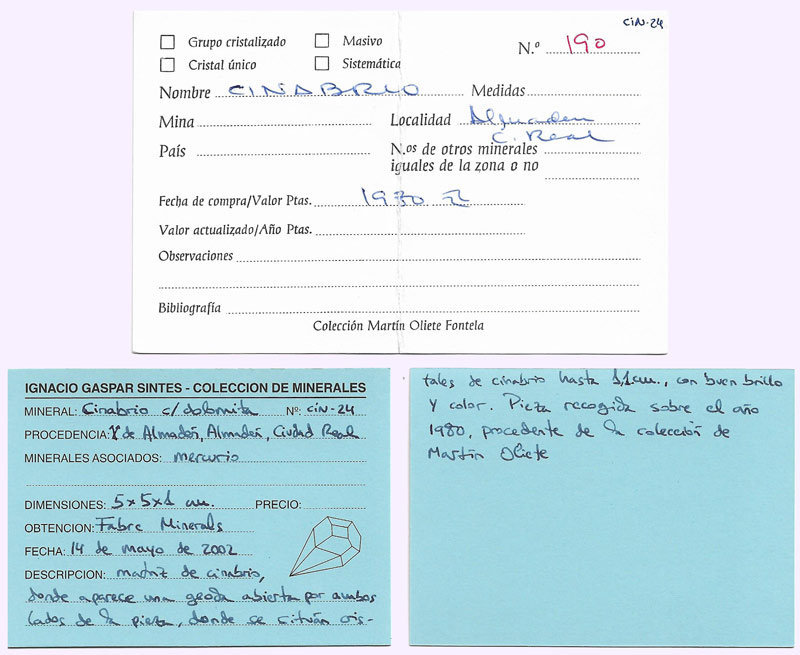 CIN-24
Grupo cristalizado Masivo N.º 190
Cristal único Sistemática
Nombre CINABRIO Medidas
Mina Localidad Almaden
C. Real
País N.os de otros minerales
iguales de la zona o no
Fecha de compra/Valor Ptas. 1980
Valor actualizado/Año Ptas.
Observaciones
Bibliografía
Colección Martín Oliete Fontela
IGNACIO GASPAR SINTES - COLECCION DE MINERALES
MINERAL: Cinabrio c/ dolomita Nº: CIN-24
PROCEDENCIA: Yº de Almadén, Almadén, Ciudad Real
MINERALES ASOCIADOS: mercurio
DIMENSIONES: 5x5x1 cm. PRECIO:
OBTENCION: Fabre Minerals
FECHA: 14 de mayo de 2002
DESCRIPCION: matriz de cinabrio,
donde aparece una geoda abierta por ambos
lados de la pieza, donde se sitúan cris-
tales de cinabrio hasta 1,1 cm., con buen brillo
y color. Pieza recogida sobre el año
1980, procedente de la colección de
Martín Oliete